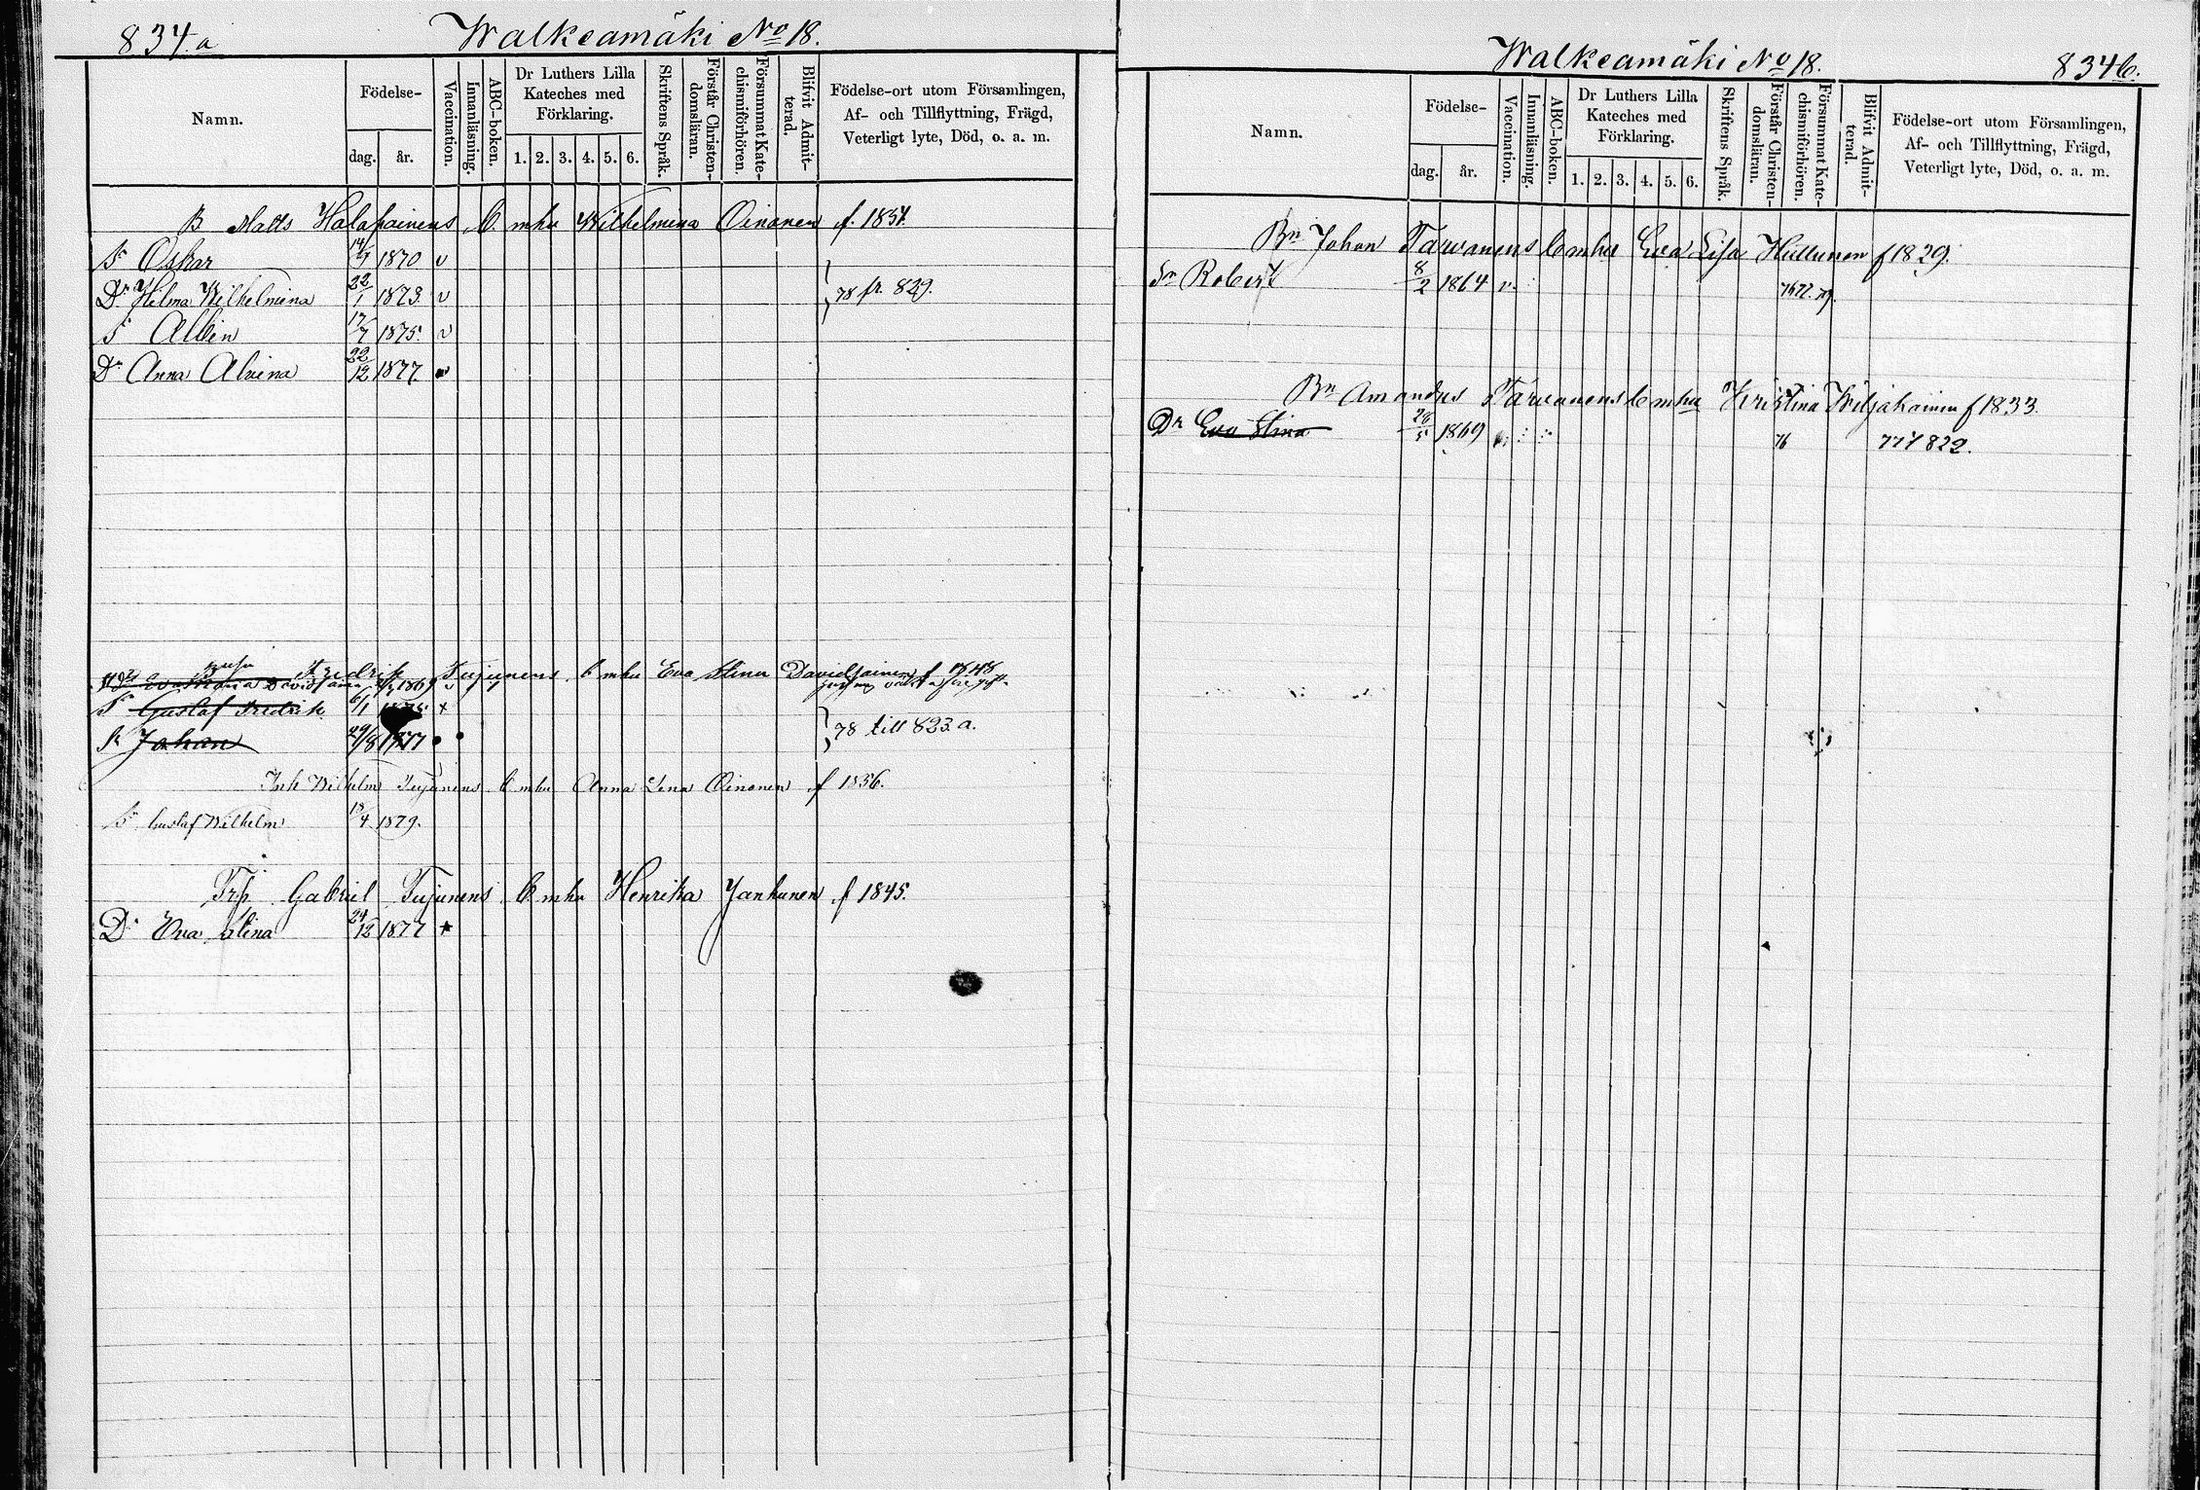 834.a
Walkeamäki No 18.
Namn.
Födelse-
dag.
år.
Vaccination.
Innanläsning.
ABC-boken.
Dr Luthers Lilla
Kateches med
Förklaring.
1. 2. 3. 4. 5. 6.
Skriftens Språk.
Förstår Christen-
domsläran.
Försummat Kate-
chismiförhören.
Blifvit Admit-
terad.
Födelse-ort utom Församlingen,
Af- och Tillflyttning, Frägd,
Veterligt lyte, Död, o. a. m.
B Matts Halapainens b. m. hu Wilhelmina Oinonen f. 1851.
Sn Oskar 14/7 1870 v
Dr Helma Wilhelmina 22/1 1873 v 78 fr. 829.
Sn Albin 17/7 1875. v
Dr Anna Alvina 22/12 1877. v
Fredrik Tujunens b m hu Eva Stina Davidsainen f. 1848
1869 v
Sn Gustaf Fredrik 6/1 +
Sn Johan 29/8 1877 78 till 823.a.
Inh Wilhelm Tujunens b m hu Anna Lena Oinonen f 1856.
Sn Gustaf Wilhelm 15/4 1879.
Trp Gabriel Tujunens b m hu Henrika Janhunen f 1845.
Dr Eva Stina 24/12 1877 +
Walkeamäki No 18.
834b.
Namn.
Födelse-
dag.
år.
Vaccination.
Innanläsning.
ABC-boken.
Dr Luthers Lilla
Kateches med
Förklaring.
1. 2. 3. 4. 5. 6.
Skriftens Språk.
Förstår Christen-
domsläran.
Försummat Kate-
chismiförhören.
Blifvit Admit-
terad.
Födelse-ort utom Församlingen,
Af- och Tillflyttning, Frägd,
Veterligt lyte, Död, o. a. m.
Bn Johan Tarvanens b m hu Eva Lisa Huttunen f 1829.
Sn Robert 8/2 1864 v. 76 77. 79.
Bn Amandus Tarvanens b m hu Kristina Wiljakainen f 1833.
Dr Eva Stina 28/5 1869 76 77 t 822.